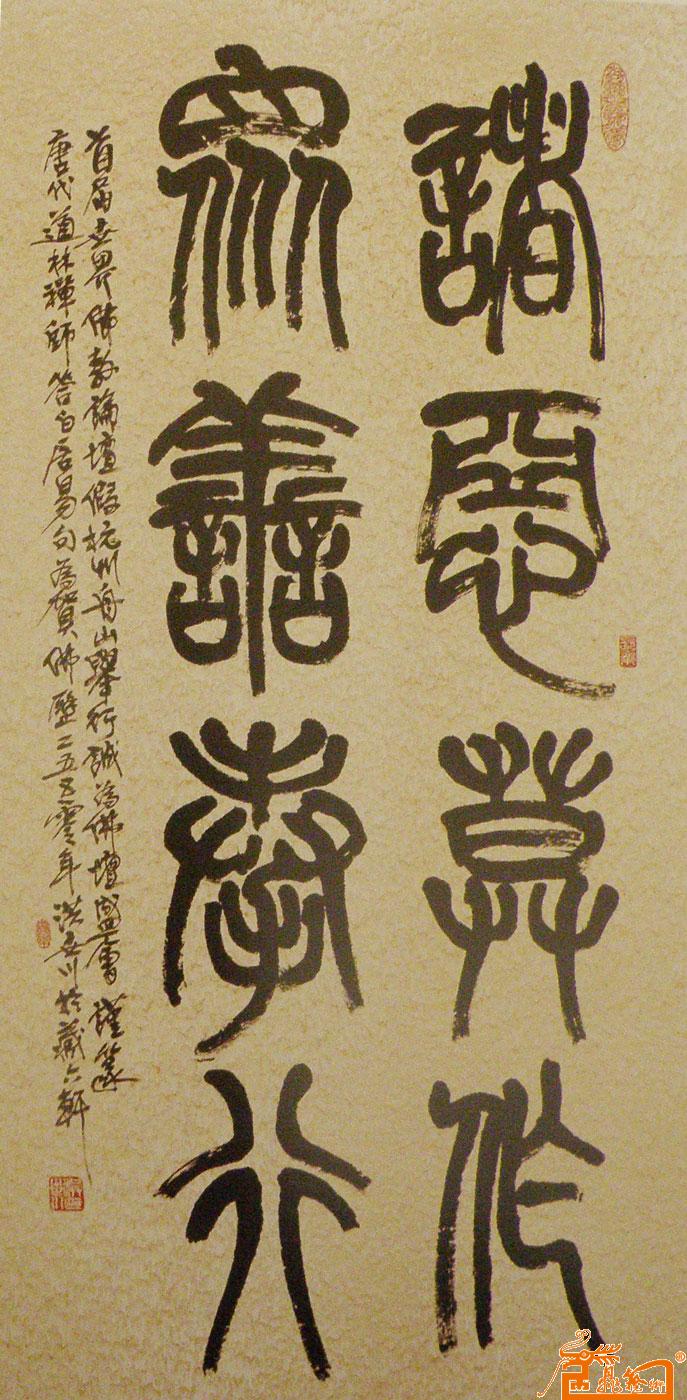 諸惡莫作
眾善奉行
首屆世界佛教論壇假杭州舟山舉行誠為佛壇盛會謹篆
唐代道林禪師答白居易句為賀佛歷二五五零年洪安川於藏六軒